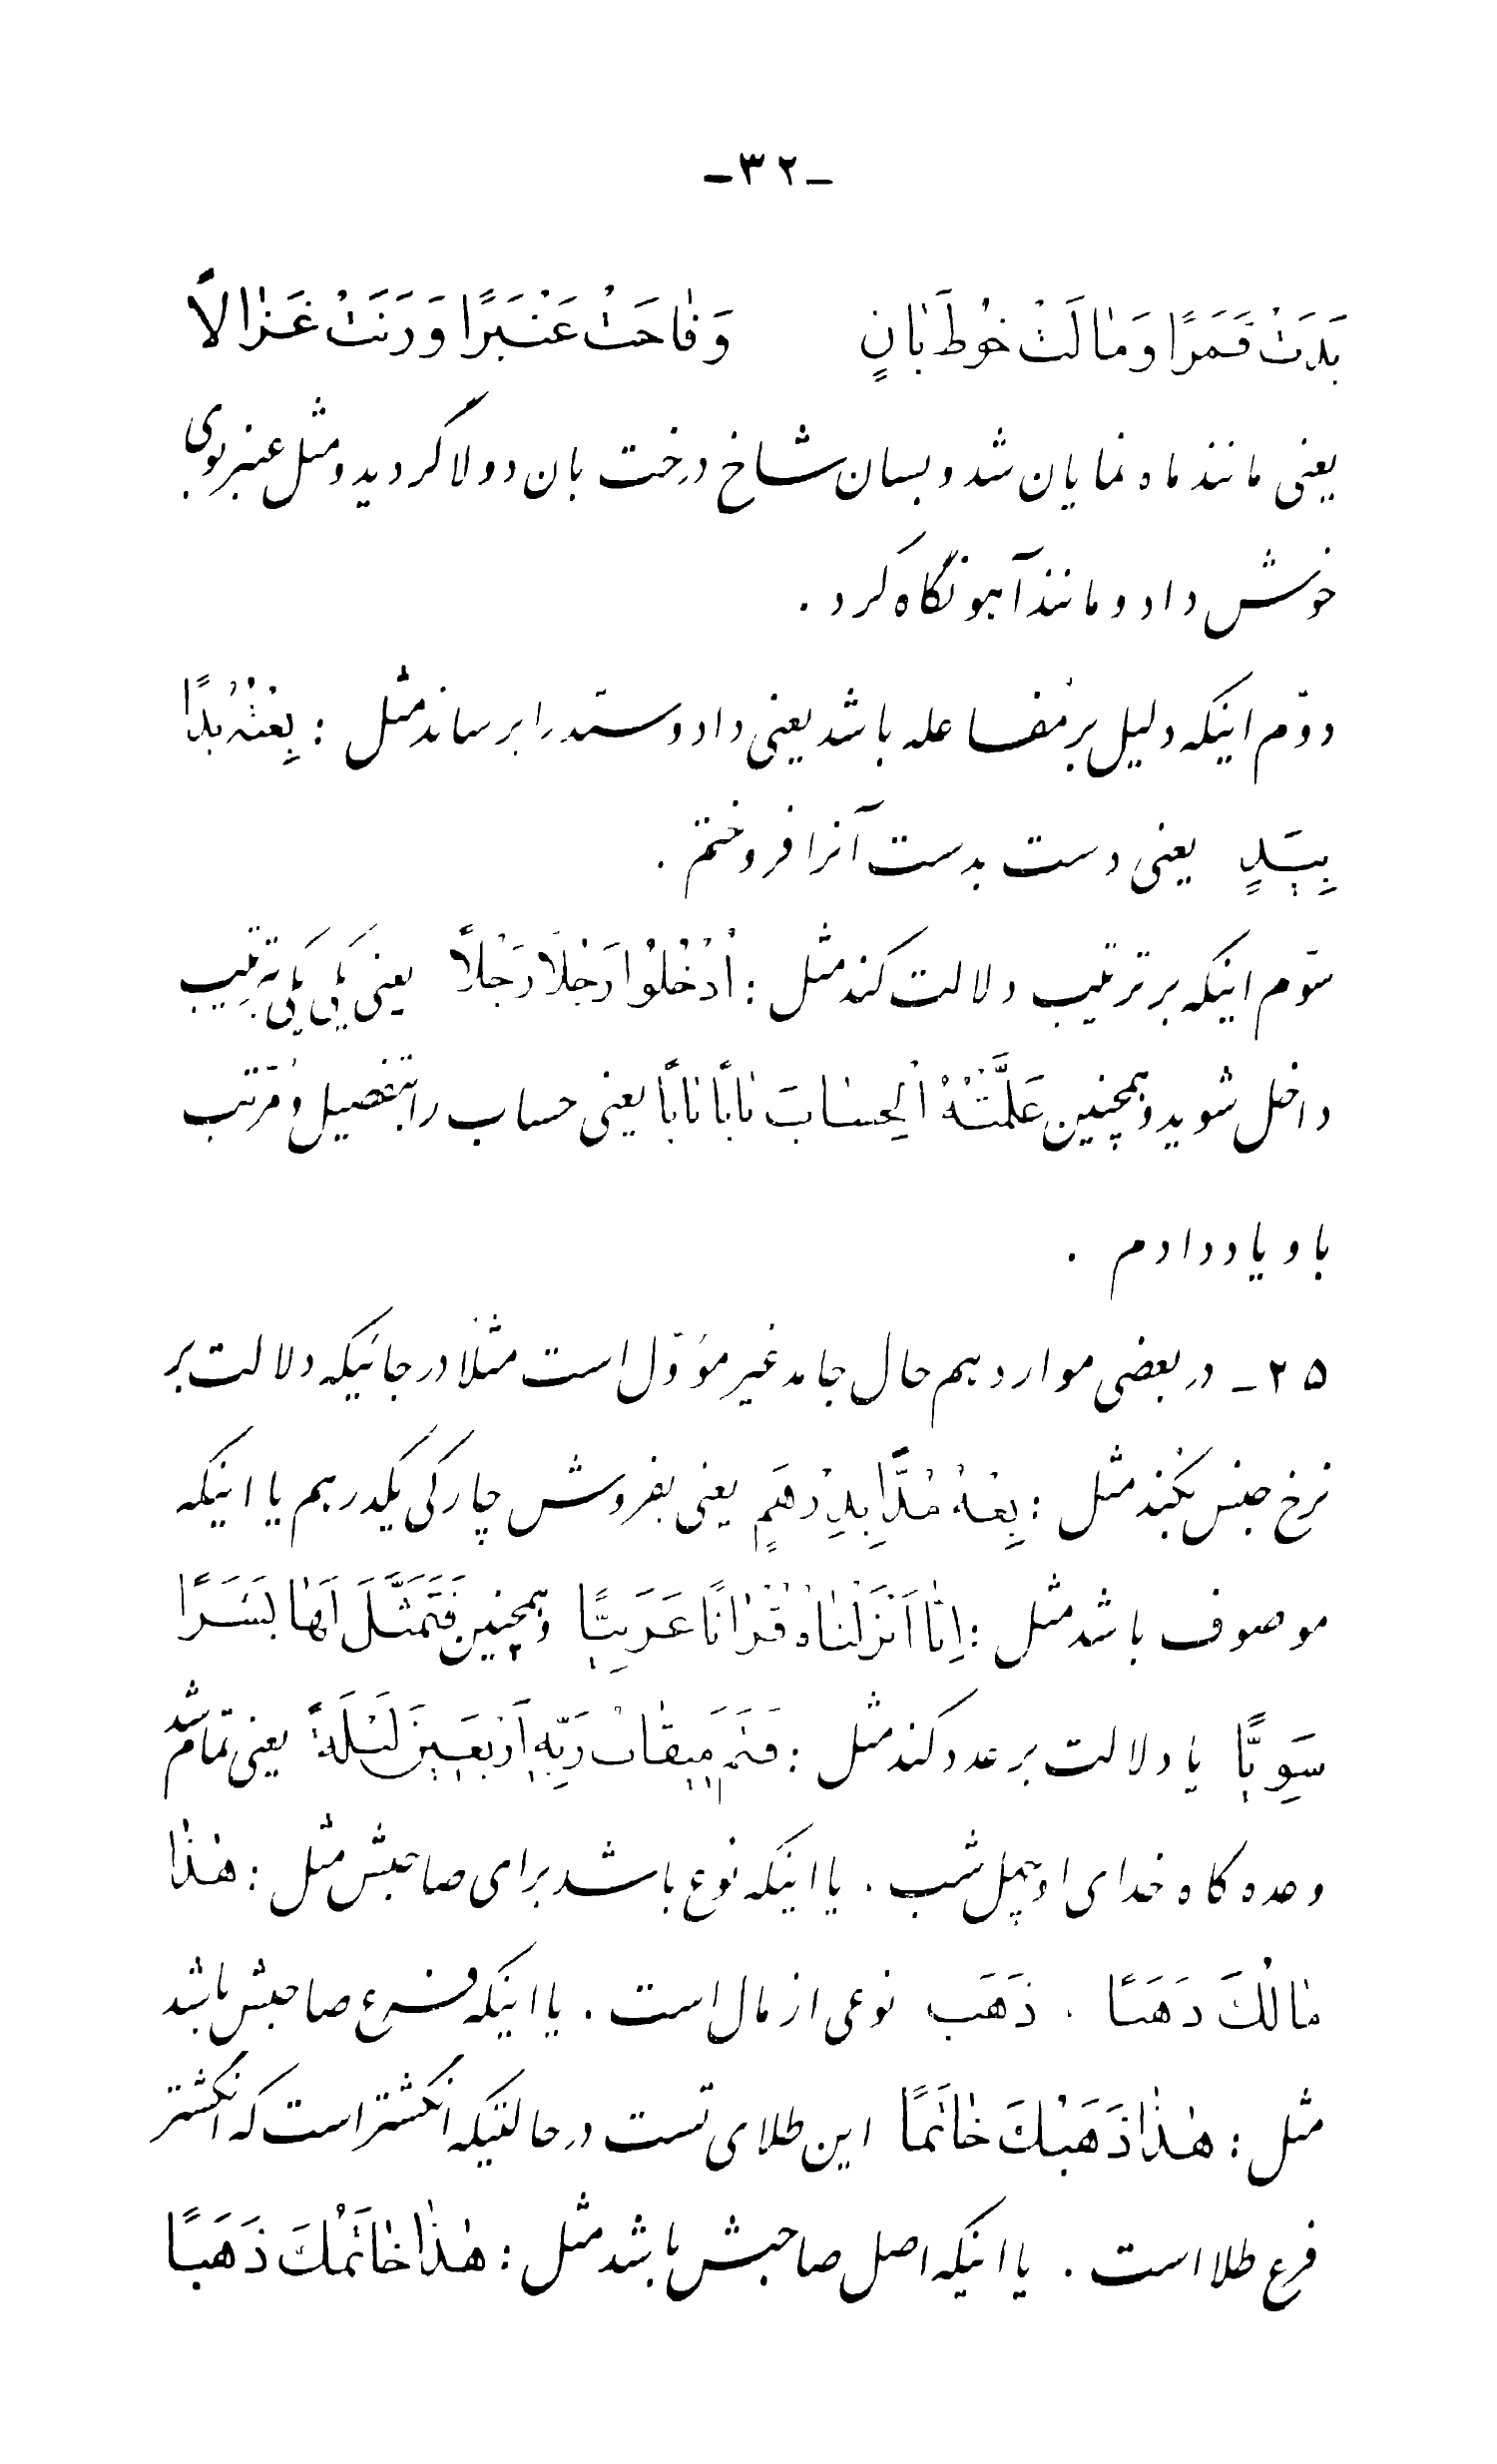 -۳۲-
بَدَتْ قَمَرًا وَمٰالَتْ خُوطَ بٰانٍ وَفٰاحَتْ عَنْبَرًا وَرَنَتْ غَزٰالاً
یعنی مانند ماه نمایان شد و بسان شاخ درخت بان دولا گردید و مثل عنبر بوی
خوش داد و مانند آهو نگاه کرد .
دوّم اینکه دلیل بر مفاعله باشد یعنی داد و ستد را برساند مثل : بِعْتُهُ یَدًا
بِیَدٍ یعنی دست بدست آنرا فروختم .
سوّم اینکه بر ترتیب دلالت کند مثل : اُدْخُلُوا رَجُلاً رَجُلاً یعنی یکی یکی بترتیب
داخل شوید و همچنین عَلَّمْتُهُ الْحِسٰابَ بٰابًا بٰابًا یعنی حساب را بتفصیل و مرتّب
باو یاد دادم .
۲۵ - در بعضی موارد هم حال جامد غیر مؤوّل است مثلاً در جائیکه دلالت بر
نرخ جنس بکند مثل : بِعْهُ مُدًّا بِدِرْهَمٍ یعنی بفروش چارکی یکدرهم یا اینکه
موصوف باشد مثل : اِنّٰا اَنْزَلْنٰاهُ قُرْاٰنًا عَرَبِیًّا و همچنین فَتَمَثَّلَ لَهٰا بَشَرًا
سَوِیًّا یا دلالت بر عدد کند مثل : فَتَمَّ مِیقٰاتُ رَبِّهِ اَرْبَعِینَ لَیْلَةً یعنی تمام شد
وعده گاه خدای او چهل شب . یا اینکه نوع باشد برای صاحبش مثل : هٰذٰا
مٰالُكَ ذَهَبًا . ذَهَب نوعی از مال است . یا اینکه فرع صاحبش باشد
مثل : هٰذٰا ذَهَبُكَ خٰاتَمًا این طلای تست در حالتیکه انگشتر است که انگشتر
فرع طلا است . یا اینکه اصل صاحبش باشد مثل : هٰذٰا خٰاتَمُكَ ذَهَبًا